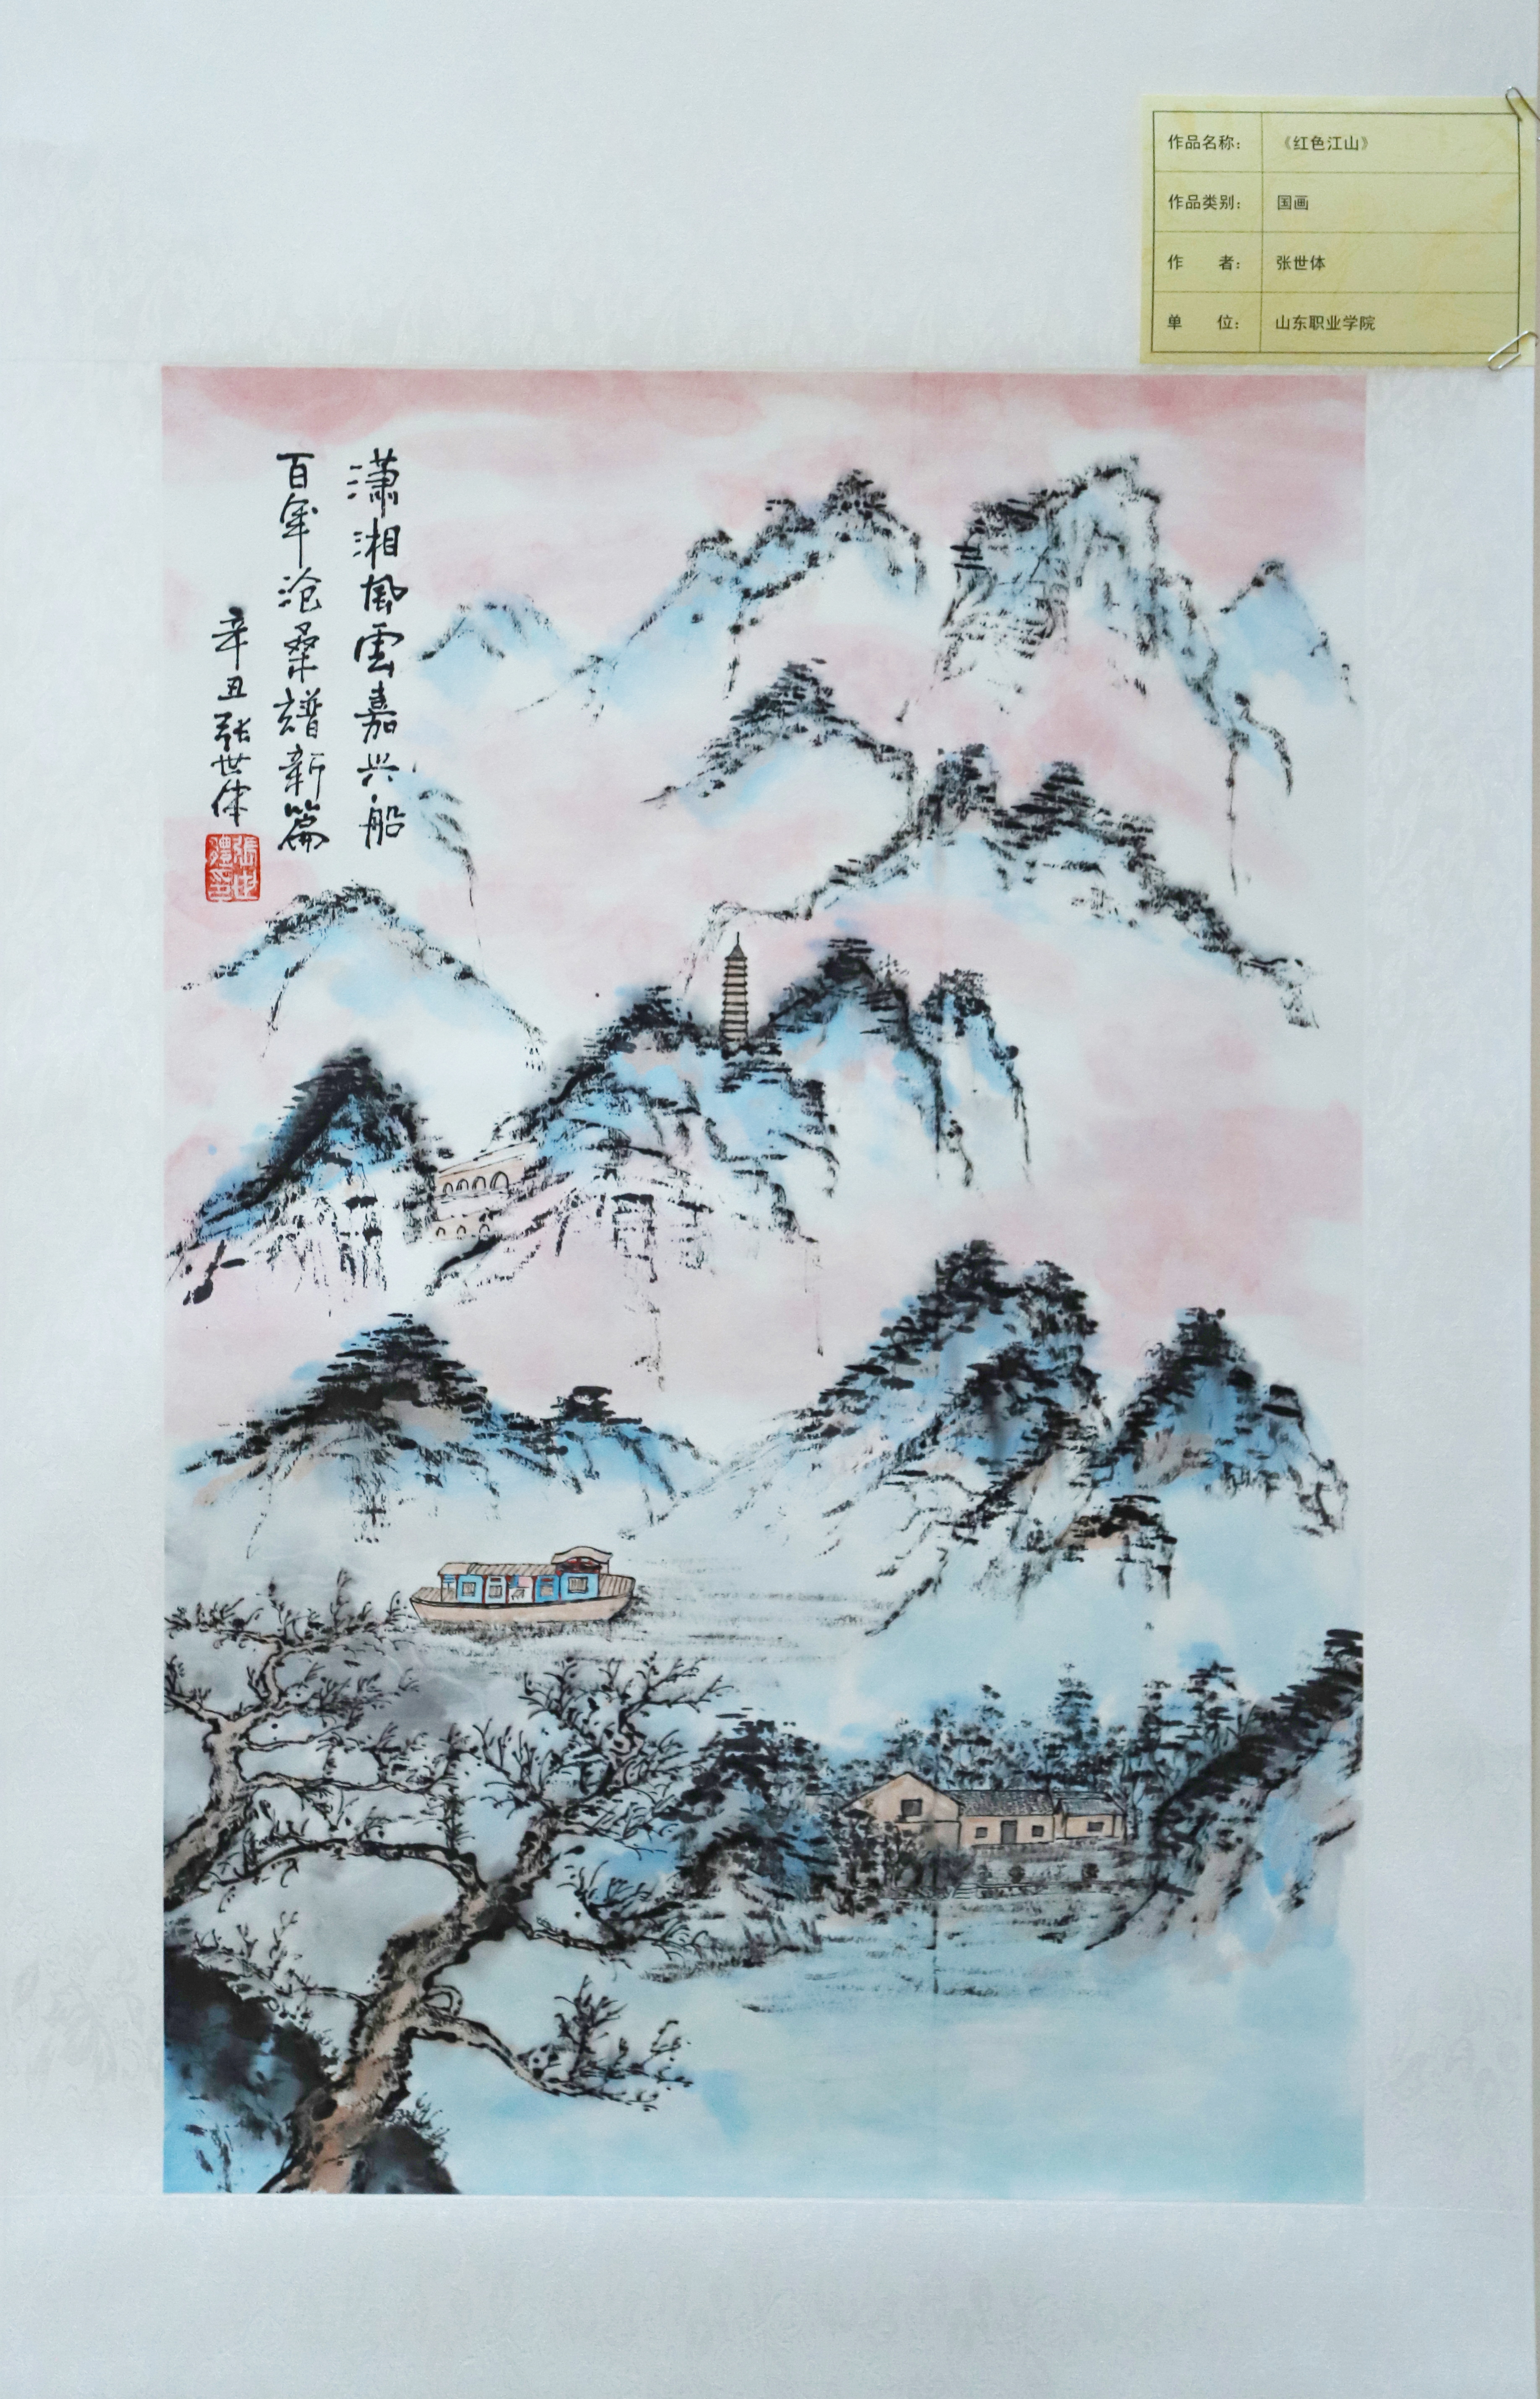 作品名称： 《红色江山》
作品类别： 国画
作 者： 张世体
单 位： 山东职业学院
潇湘風雲嘉兴船
百年沧桑譜新篇
辛丑张世体
張世體印